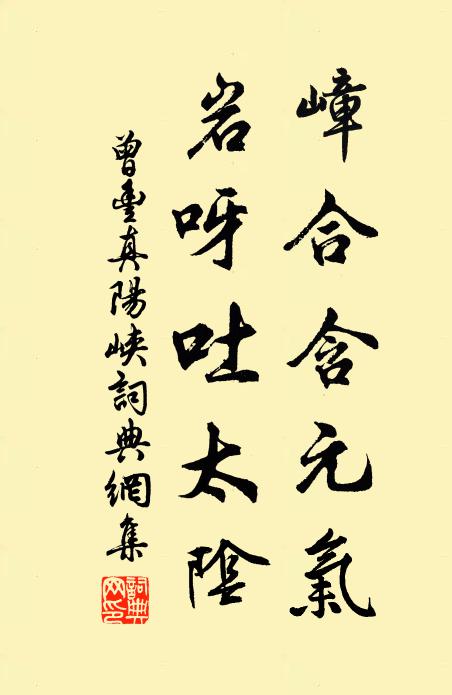 嶂合含元氣
岩呀吐太陰
曾豐真陽峽詞典網集
詞典網印